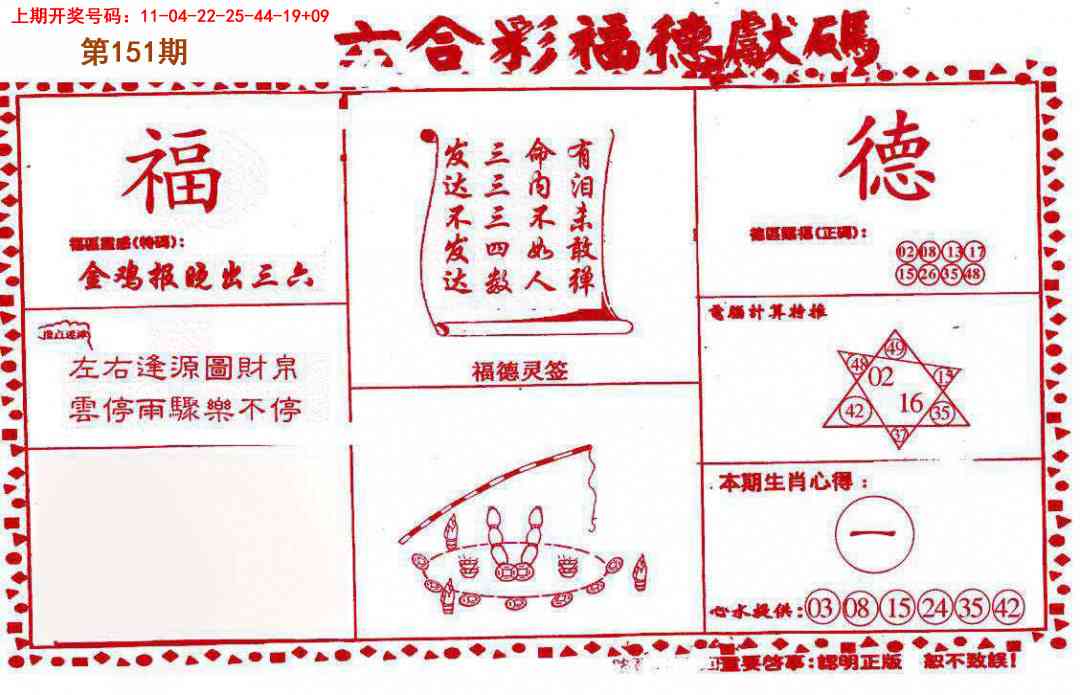 上期开奖号码：11-04-22-25-44-19+09
第151期
六合彩福德獻碼
福
福區靈感(特碼)：
金鸡报晚出三六
左右逢源圖財帛
雲停雨驟樂不停
有泪未敢弹
命内不如人
三三三四数
发达不发达
福德灵签
德
德區靈感(正碼)：
02 08 13 17
15 26 35 48
電腦計算特推
49
48 02 15
42 16 35
37
本期生肖心得：
一
心水提供：03 08 15 24 35 42
重要啓事：認明正版 恕不致誤！